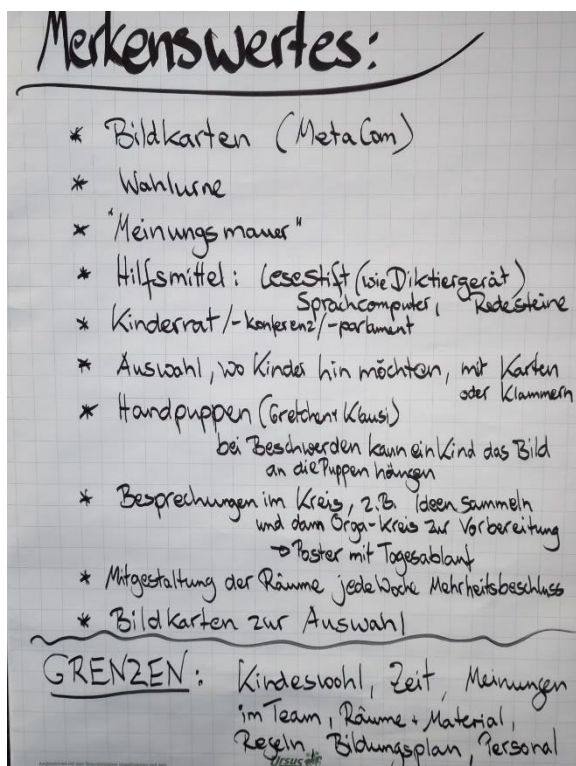 Merkenswertes:
* Bildkarten (MetaCom)
* Wahlurne
* "Meinungsmauer"
* Hilfsmittel: Lesestift (wie Diktiergerät)
Sprachcomputer, Redesteine
* Kinderrat/-konferenz/-parlament
* Auswahl, wo Kinder hin möchten, mit Karten
oder Klammern
* Handpuppen (Gretchen + Klausi)
bei Beschwerden kann ein Kind das Bild
an die Puppen hängen
* Besprechungen im Kreis, z.B. Ideen sammeln
und dann Orga-Kreis zur Vorbereitung
→ Poster mit Tagesablauf
* Mitgestaltung der Räume jede Woche Mehrheitsbeschluss
* Bildkarten zur Auswahl
GRENZEN: Kindeswohl, Zeit, Meinungen
im Team, Räume + Material,
Regeln, Bildungsplan, Personal
Ursus